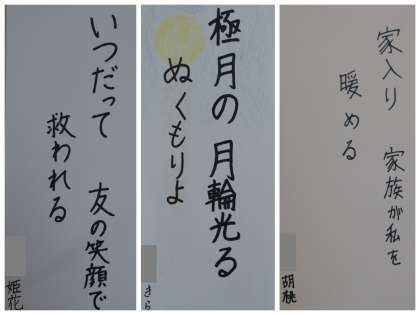 いつだって 友の笑顔で
救われる
姫花
極月の 月輪光る
ぬくもりよ
きら
家入り 家族が私を
暖める
胡桃